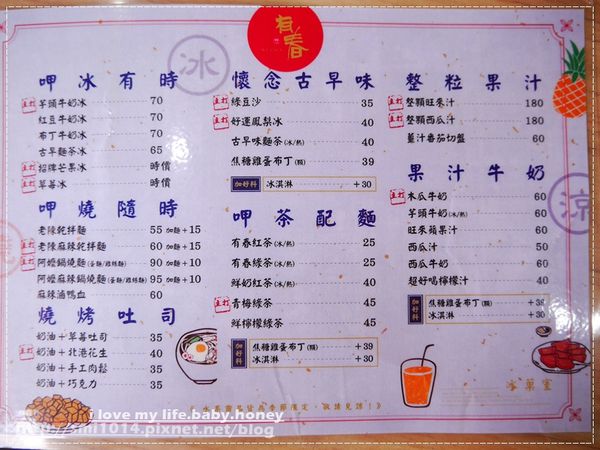 有春
冰
呷冰有時
主打 芋頭牛奶冰 70
紅豆牛奶冰 70
布丁牛奶冰 70
古早麵茶冰 65
主打 招牌芒果冰 時價
主打 草莓冰 時價
呷燒隨時
老陳乾拌麵 55 加麵+15
主打 老陳麻辣乾拌麵 60 加麵+15
主打 阿嬤鍋燒麵(意麵/雞絲麵) 90 加麵+10
阿嬤麻辣鍋燒麵(意麵/雞絲麵) 95 加麵+10
麻辣滷鴨血 60
燒烤吐司
奶油+草莓吐司 35
主打 奶油+北港花生 40
奶油+手工肉鬆 35
奶油+巧克力 35
懷念古早味
主打 綠豆沙 35
主打 好運鳳梨冰 40
古早味麵茶(冰/熱) 40
焦糖雞蛋布丁(顆) 39
加好料 冰淇淋 +30
呷茶配麵
有春紅茶(冰/熱) 25
有春綠茶(冰/熱) 25
鮮奶紅茶(冰/熱) 40
主打 青梅綠茶 45
鮮檸檬綠茶 45
加好料 焦糖雞蛋布丁(顆) +39
冰淇淋 +30
整粒果汁
主打 整顆旺來汁 180
主打 整顆西瓜汁 180
薑汁番茄切盤 60
果汁牛奶
主打 木瓜牛奶 60
芋頭牛奶(冰/熱) 60
旺來蘋果汁 60
西瓜汁 50
西瓜牛奶 60
超好喝檸檬汁 60
加好料 焦糖雞蛋布丁(顆) +39
冰淇淋 +30
涼
燒
冰菓室
i love my life.baby.honey
http://imi1014.pixnet.net/blog